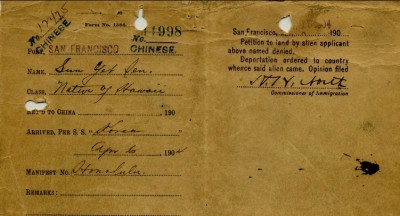 No. CHINESE.
Form No. 1506.
No. 11998
CHINESE.
PORT, SAN FRANCISCO
NAME, Sun Yat Sen.
CLASS, Native of Hawaii
RET'D TO CHINA 190
ARRIVED, PER S. S. Korea
Apr 6 190
MANIFEST NO. Honolulu.
REMARKS:
San Francisco, 190
Petition to land by alien applicant
above named denied.
Deportation ordered to country
whence said alien came. Opinion filed
Commissioner of Immigration